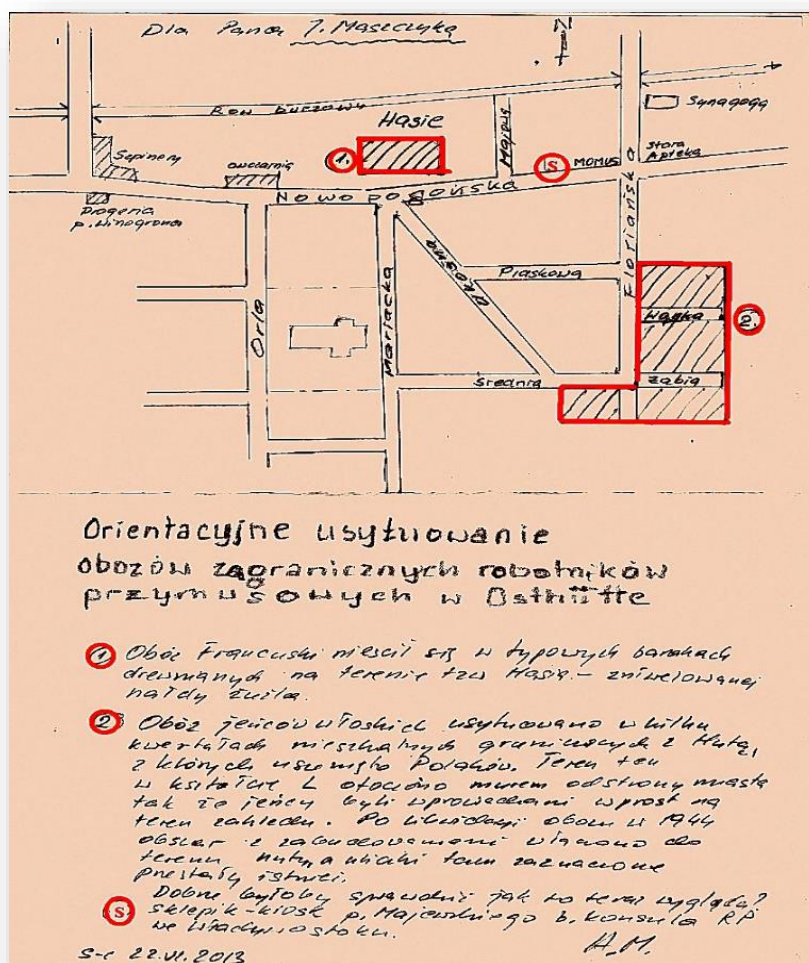 Dla Pana J. Maszczyka
N
Rów burzowy
Hasie
1.
Majowa
S
MOMUS
Synagoga
stara
Apteka
Sepinery
owczarnia
Drogeria
p. Winogrona
Nowopogońska
Floriańska
Ukośna
Piaskowa
Wąska
2.
Orla
Mariacka
Średnia
Żabia
Orientacyjne usytuowanie
obozów zagranicznych robotników
przymusowych w Osthütte
1 Obóz Francuski mieścił się w typowych barakach
drewnianych na terenie tzw Hasia – zniwelowanej
hałdy żużla.
2 Obóz jeńców włoskich usytuowano w kilku
kwartałach mieszkalnych graniczących z Hutą,
z których usunięto Polaków. Teren ten
w kształcie L otoczono murem od strony miasta
tak że jeńcy byli wprowadzani wprost na
teren zakładu. Po likwidacji obozu w 1944
obszar z zabudowaniami włączono do
terenu huty a uliczki tam zaznaczone
przestały istnieć.
Dobrze byłoby sprawdzić jak to teraz wygląda?
S sklepik-kiosk p. Majewskiego b. konsula RP
we Władywostoku.
A.M.
S-c 22.VI.2013